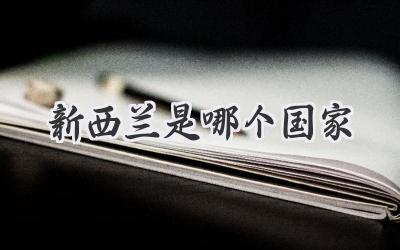 新西兰是哪个国家